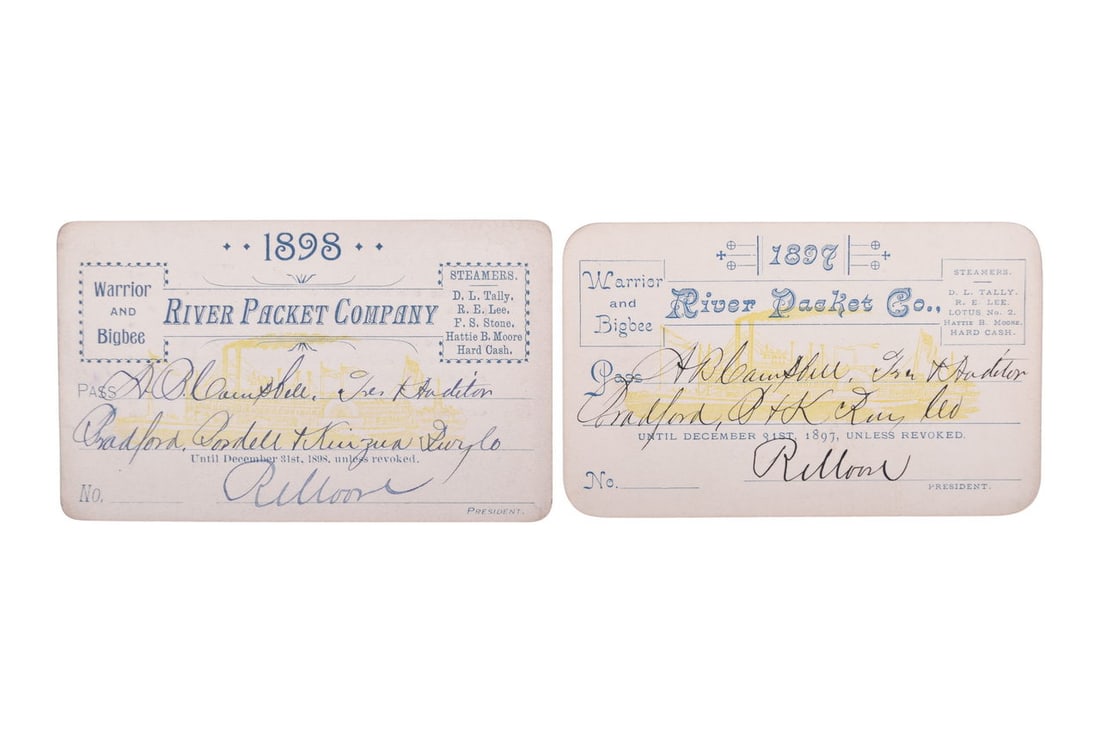 1898
Warrior
AND
Bigbee
RIVER PACKET COMPANY
STEAMERS.
D. L. Tally.
R. E. Lee.
F. S. Stone.
Hattie B. Moore
Hard Cash.
PASS A B Campbell, Tres & Auditor
Bradford, Bordell & Kinzua Rwy Co
Until December 31st, 1898, unless revoked.
No. R E Moore
PRESIDENT.
1897
Warrior
and
Bigbee
River Packet Co.,
STEAMERS.
D. L. TALLY.
R. E. LEE.
LOTUS No. 2.
HATTIE B. MOORE.
HARD CASH.
Pass A B Campbell, Tres & Auditor
Bradford, B & K Rwy Co
UNTIL DECEMBER 31ST, 1897, UNLESS REVOKED.
R E Moore
No.
PRESIDENT.